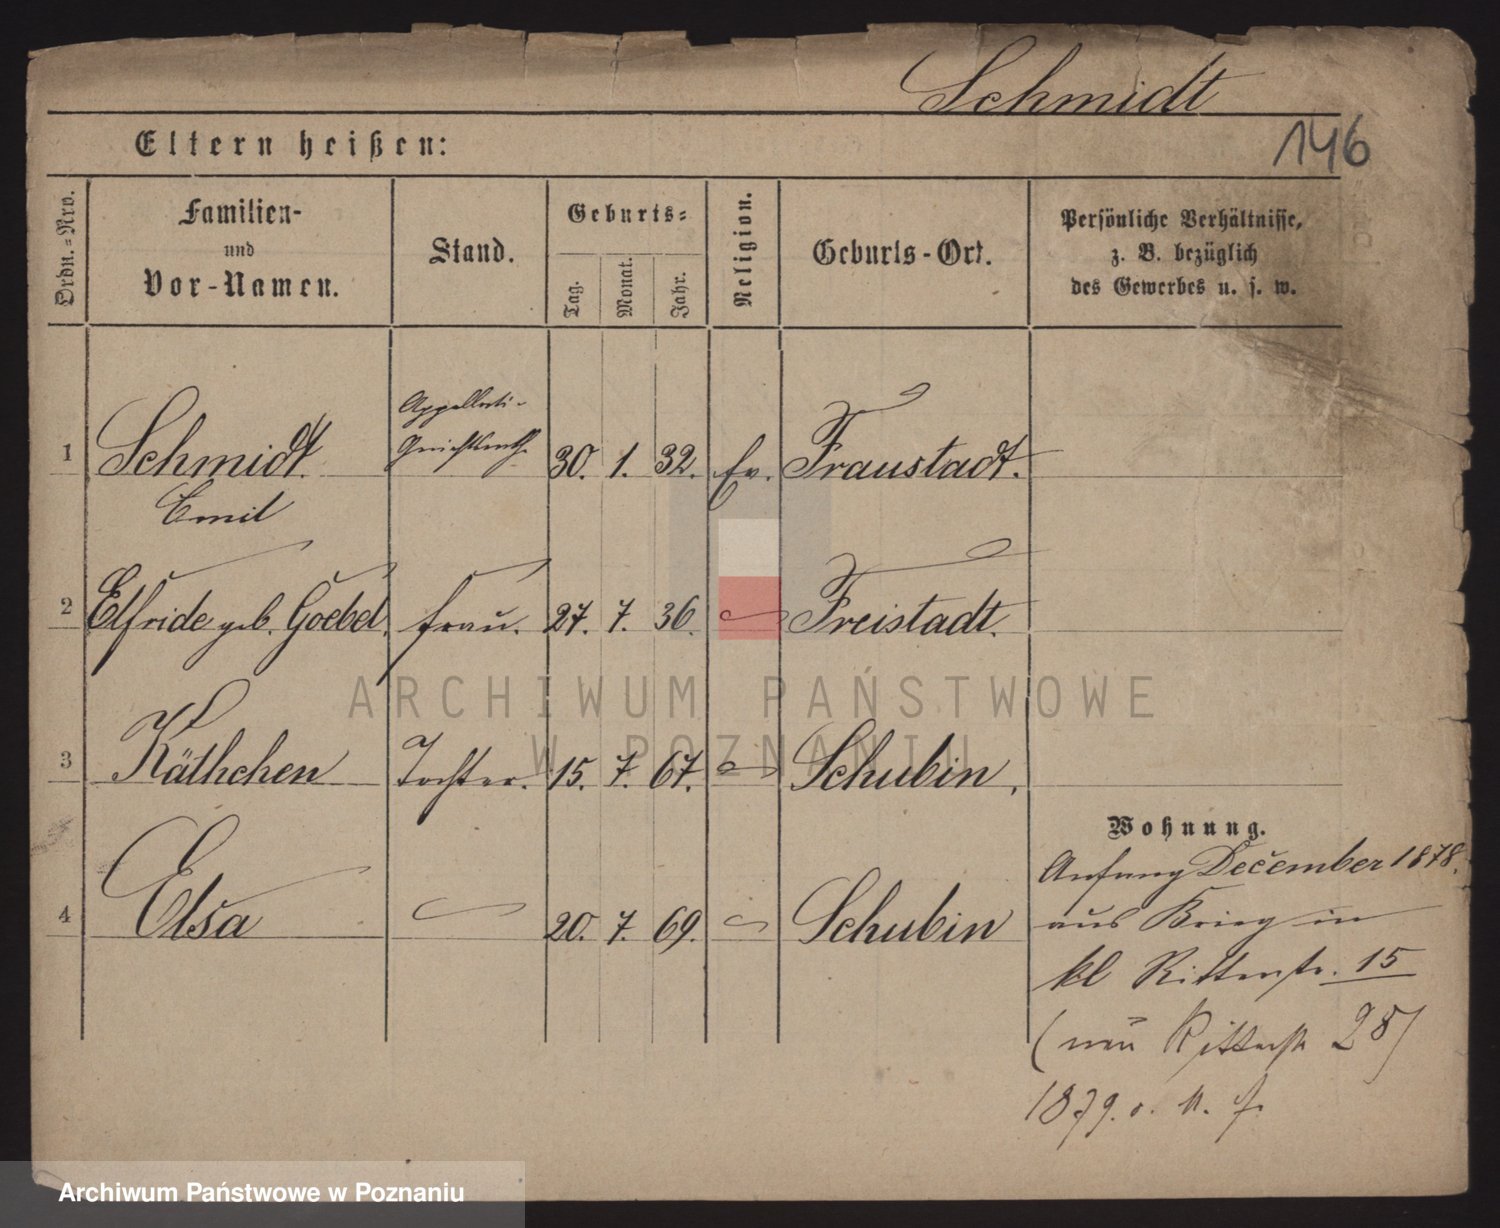 Schmidt
146
Eltern heißen:
Ordn.=Nro.
Familien-
und
Vor-Namen.
Stand.
Geburts=
Tag.
Monat.
Jahr.
Religion.
Geburts-Ort.
Persönliche Verhältnisse,
z. B. bezüglich
des Gewerbes u. s. w.
1 Schmidt. Appellati- Gerichtsrath 30. 1. 32. Ev. Fraustadt.
Emil
2 Elfride geb. Goebel. Frau. 27. 7. 36. Freistadt.
3 Käthchen Tochter. 15. 7. 67. Schubin.
4 Elsa 20. 7. 69. Schubin
Wohnung.
Anfang December 1878.
aus Brieg in
kl Ritterstr. 15
(neu Ritterstr 28)
1879.
ARCHIWUM PAŃSTWOWE
W POZNANIU
Archiwum Państwowe w Poznaniu